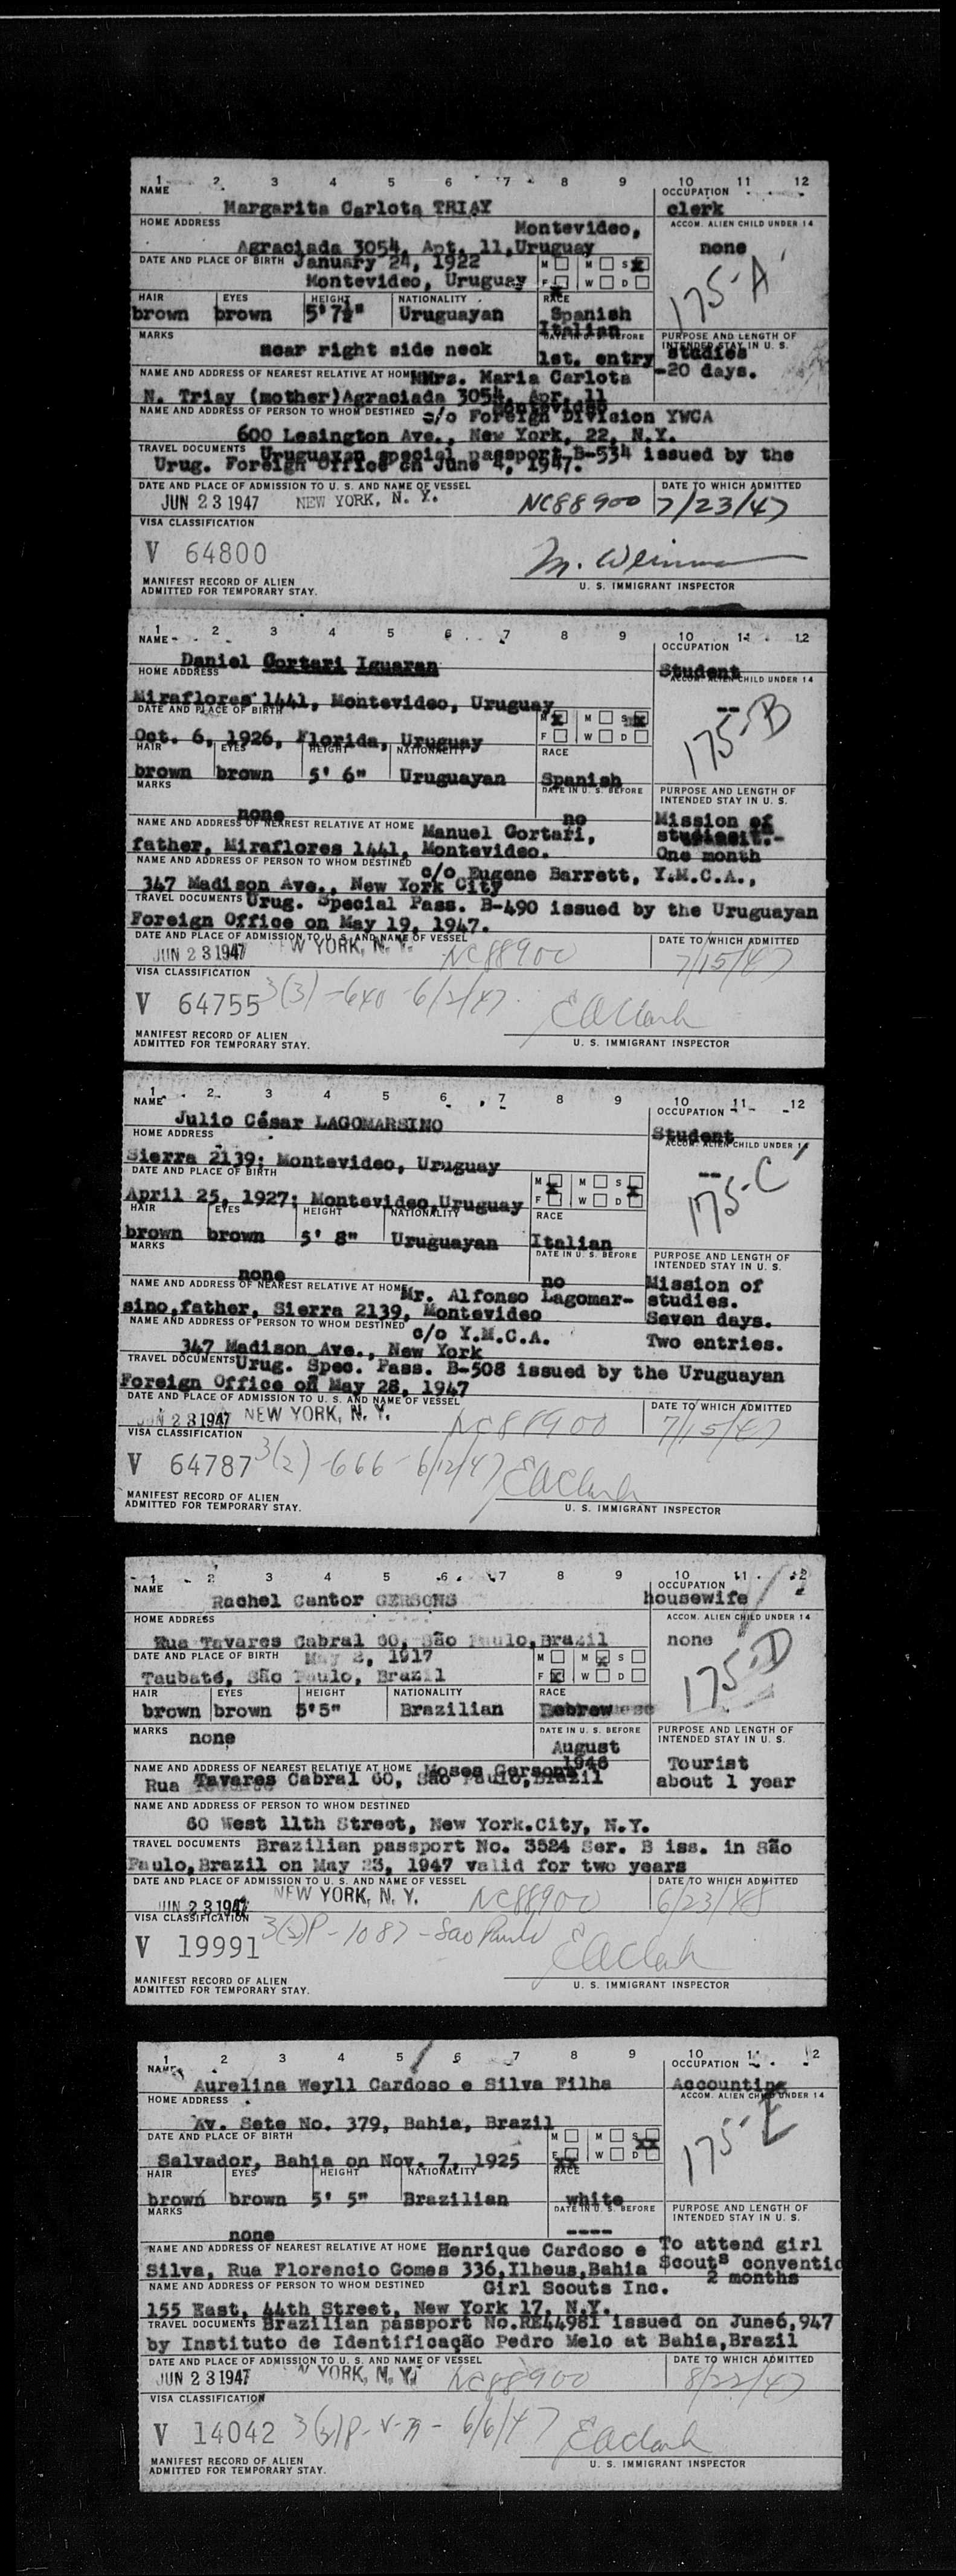 1 2 3 4 5 6 7 8 9 10 11 12
NAME OCCUPATION
Margarita Carlota TRIAY clerk
HOME ADDRESS ACCOM. ALIEN CHILD UNDER 14
Montevideo, none
Agraciada 3054, Apt. 11, Uruguay
DATE AND PLACE OF BIRTH January 24, 1922 M M S
Montevideo, Uruguay F W D
175-A
HAIR EYES HEIGHT NATIONALITY RACE
brown brown 5' 7½" Uruguayan Spanish
Italian
MARKS DATE IN U. S. BEFORE PURPOSE AND LENGTH OF
INTENDED STAY IN U. S.
scar right side neck 1st. entry studies
NAME AND ADDRESS OF NEAREST RELATIVE AT HOME Mrs. Maria Carlota -20 days.
N. Triay (mother) Agraciada 3054, Apr. 11
Montevideo
NAME AND ADDRESS OF PERSON TO WHOM DESTINED c/o Foreign Division YWCA
600 Lesington Ave., New York, 22, N.Y.
TRAVEL DOCUMENTS Uruguayan special passport B-534 issued by the
Urug. Foreign Office on June 4, 1947.
DATE AND PLACE OF ADMISSION TO U. S. AND NAME OF VESSEL DATE TO WHICH ADMITTED
JUN 23 1947 NEW YORK, N. Y. NC88900 7/23/47
VISA CLASSIFICATION
V 64800
MANIFEST RECORD OF ALIEN U. S. IMMIGRANT INSPECTOR
ADMITTED FOR TEMPORARY STAY.
1 2 3 4 5 6 7 8 9 10 11 12
NAME OCCUPATION
Daniel Gortari Iguaran Student
HOME ADDRESS ACCOM. ALIEN CHILD UNDER 14
Miraflores 1441, Montevideo, Uruguay --
DATE AND PLACE OF BIRTH M M S
Oct. 6, 1926, Florida, Uruguay F W D
175-B
HAIR EYES HEIGHT NATIONALITY RACE
brown brown 5' 6" Uruguayan Spanish
MARKS DATE IN U. S. BEFORE PURPOSE AND LENGTH OF
INTENDED STAY IN U. S.
none no Mission of
NAME AND ADDRESS OF NEAREST RELATIVE AT HOME Manuel Gortari,
father, Miraflores 1441, Montevideo. One month
NAME AND ADDRESS OF PERSON TO WHOM DESTINED c/o Eugene Barrett, Y.M.C.A.,
347 Madison Ave., New York City
TRAVEL DOCUMENTS Urug. Special Pass. B-490 issued by the Uruguayan
Foreign Office on May 19, 1947.
DATE AND PLACE OF ADMISSION TO U. S. AND NAME OF VESSEL DATE TO WHICH ADMITTED
JUN 23 1947 W YORK, N. Y. NC88900 7/15/47
VISA CLASSIFICATION
V 64755 3(3)-640-6/2/47 EAClark
MANIFEST RECORD OF ALIEN U. S. IMMIGRANT INSPECTOR
ADMITTED FOR TEMPORARY STAY.
1 2 3 4 5 6 7 8 9 10 11 12
NAME OCCUPATION
Julio César LAGOMARSINO Student
HOME ADDRESS ACCOM. ALIEN CHILD UNDER 14
Sierra 2139; Montevideo, Uruguay --
DATE AND PLACE OF BIRTH M M S
April 25, 1927; Montevideo, Uruguay F W D
175-C
HAIR EYES HEIGHT NATIONALITY RACE
brown brown 5' 8" Uruguayan Italian
MARKS DATE IN U. S. BEFORE PURPOSE AND LENGTH OF
INTENDED STAY IN U. S.
none no Mission of
NAME AND ADDRESS OF NEAREST RELATIVE AT HOME Mr. Alfonso Lagomar- studies.
sino, father, Sierra 2139, Montevideo Seven days.
NAME AND ADDRESS OF PERSON TO WHOM DESTINED c/o Y.M.C.A. Two entries.
347 Madison Ave., New York
TRAVEL DOCUMENTS Urug. Spec. Pass. B-508 issued by the Uruguayan
Foreign Office on May 28, 1947
DATE AND PLACE OF ADMISSION TO U. S. AND NAME OF VESSEL DATE TO WHICH ADMITTED
JUN 23 1947 NEW YORK, N. Y. NC88900 7/15/47
VISA CLASSIFICATION
V 64787 3(2)-666-6/12/47 EAClark
MANIFEST RECORD OF ALIEN U. S. IMMIGRANT INSPECTOR
ADMITTED FOR TEMPORARY STAY.
1 2 3 4 5 6 7 8 9 10 11 12
NAME OCCUPATION
Rachel Cantor GERSONS housewife
HOME ADDRESS ACCOM. ALIEN CHILD UNDER 14
Rua Tavares Cabral 60, São Paulo, Brazil none
DATE AND PLACE OF BIRTH May 2, 1917 M M S
Taubaté, São Paulo, Brazil F W D
175-D
HAIR EYES HEIGHT NATIONALITY RACE
brown brown 5'5" Brazilian Hebrew
MARKS DATE IN U. S. BEFORE PURPOSE AND LENGTH OF
INTENDED STAY IN U. S.
none August
1946
NAME AND ADDRESS OF NEAREST RELATIVE AT HOME Moses Gersons Tourist
Rua Tavares Cabral 60, São Paulo, Brazil about 1 year
NAME AND ADDRESS OF PERSON TO WHOM DESTINED
60 West 11th Street, New York.City, N.Y.
TRAVEL DOCUMENTS Brazilian passport No. 3524 Ser. B iss. in São
Paulo, Brazil on May 23, 1947 valid for two years
DATE AND PLACE OF ADMISSION TO U. S. AND NAME OF VESSEL DATE TO WHICH ADMITTED
JUN 23 1947 NEW YORK, N. Y. NC88900 6/23/48
VISA CLASSIFICATION
V 19991 3(2)P-1087-Sao Paulo EAClark
MANIFEST RECORD OF ALIEN U. S. IMMIGRANT INSPECTOR
ADMITTED FOR TEMPORARY STAY.
1 2 3 4 5 6 7 8 9 10 11 12
NAME OCCUPATION
Aurelina Weyll Cardoso e Silva Filha Accounting
HOME ADDRESS ACCOM. ALIEN CHILD UNDER 14
Av. Sete No. 379, Bahia, Brazil
DATE AND PLACE OF BIRTH M M S
Salvador, Bahia on Nov. 7, 1925 F W D
175-E
HAIR EYES HEIGHT NATIONALITY RACE
brown brown 5' 5" Brazilian white
MARKS DATE IN U. S. BEFORE PURPOSE AND LENGTH OF
INTENDED STAY IN U. S.
none ----
NAME AND ADDRESS OF NEAREST RELATIVE AT HOME Henrique Cardoso e To attend girl
Silva, Rua Florencio Gomes 336, Ilheus, Bahia Scouts conventio
NAME AND ADDRESS OF PERSON TO WHOM DESTINED Girl Scouts Inc. 2 months
155 East, 44th Street, New York 17, N.Y.
TRAVEL DOCUMENTS Brazilian passport No.RE44981 issued on June6,947
by Instituto de Identificação Pedro Melo at Bahia, Brazil
DATE AND PLACE OF ADMISSION TO U. S. AND NAME OF VESSEL DATE TO WHICH ADMITTED
JUN 23 1947 W YORK, N. Y. NC88900 8/22/47
VISA CLASSIFICATION
V 14042 3(2)P-V-71-6/6/47 EAClark
MANIFEST RECORD OF ALIEN U. S. IMMIGRANT INSPECTOR
ADMITTED FOR TEMPORARY STAY.